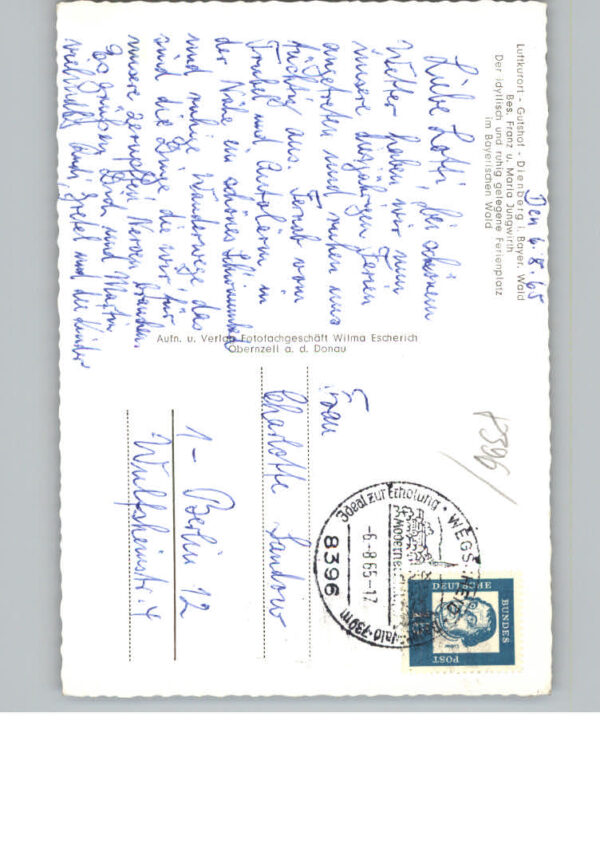 Luftkurort - Gutshof - Dienberg i. Bayer. Wald
Bes. Franz u. Maria Jungwirth
Der idyllisch und ruhig gelegene Ferienplatz
im Bayerischen Wald
Den 6.8.65
Liebe Lotti, bei schönem
Wetter haben wir nun
unsere diesjährigen Ferien
angetreten und ruhen uns
tüchtig aus. Fernab vom
Trubel und Autolärm in
der Nähe ein schönes Schwimmbad
und ruhige Wanderwege das
sind die Dinge die wir für
unsere zerrupften Nerven brauchen.
Es grüßen Dich und Martin
vielmals Gretel und die Kinder
Aufn. u. Verlag Fotofachgeschäft Wilma Escherich
Obernzell a. d. Donau
Frau
Charlotte Sandow
1 - Berlin 12
Wulfsheinstr. 4
8396
Ideal zur Erholung
WEGSCHEID
Moderne
-6-8.65-17
8396
Wald-730m
DEUTSCHE
BUNDES
POST